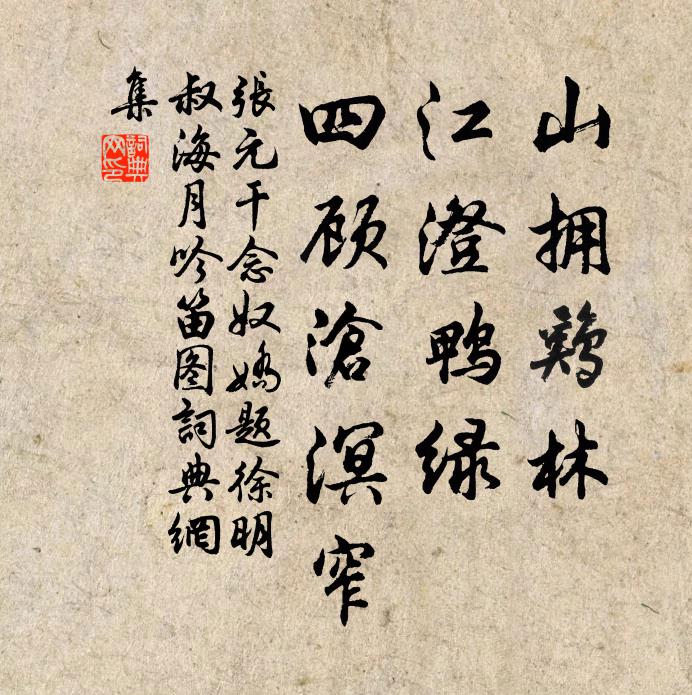 山拥鷄林
江澄鸭绿
四顾滄溟窄
張元干念奴嬌题徐明
叔海月吟笛图詞典網
集
詞典
网印